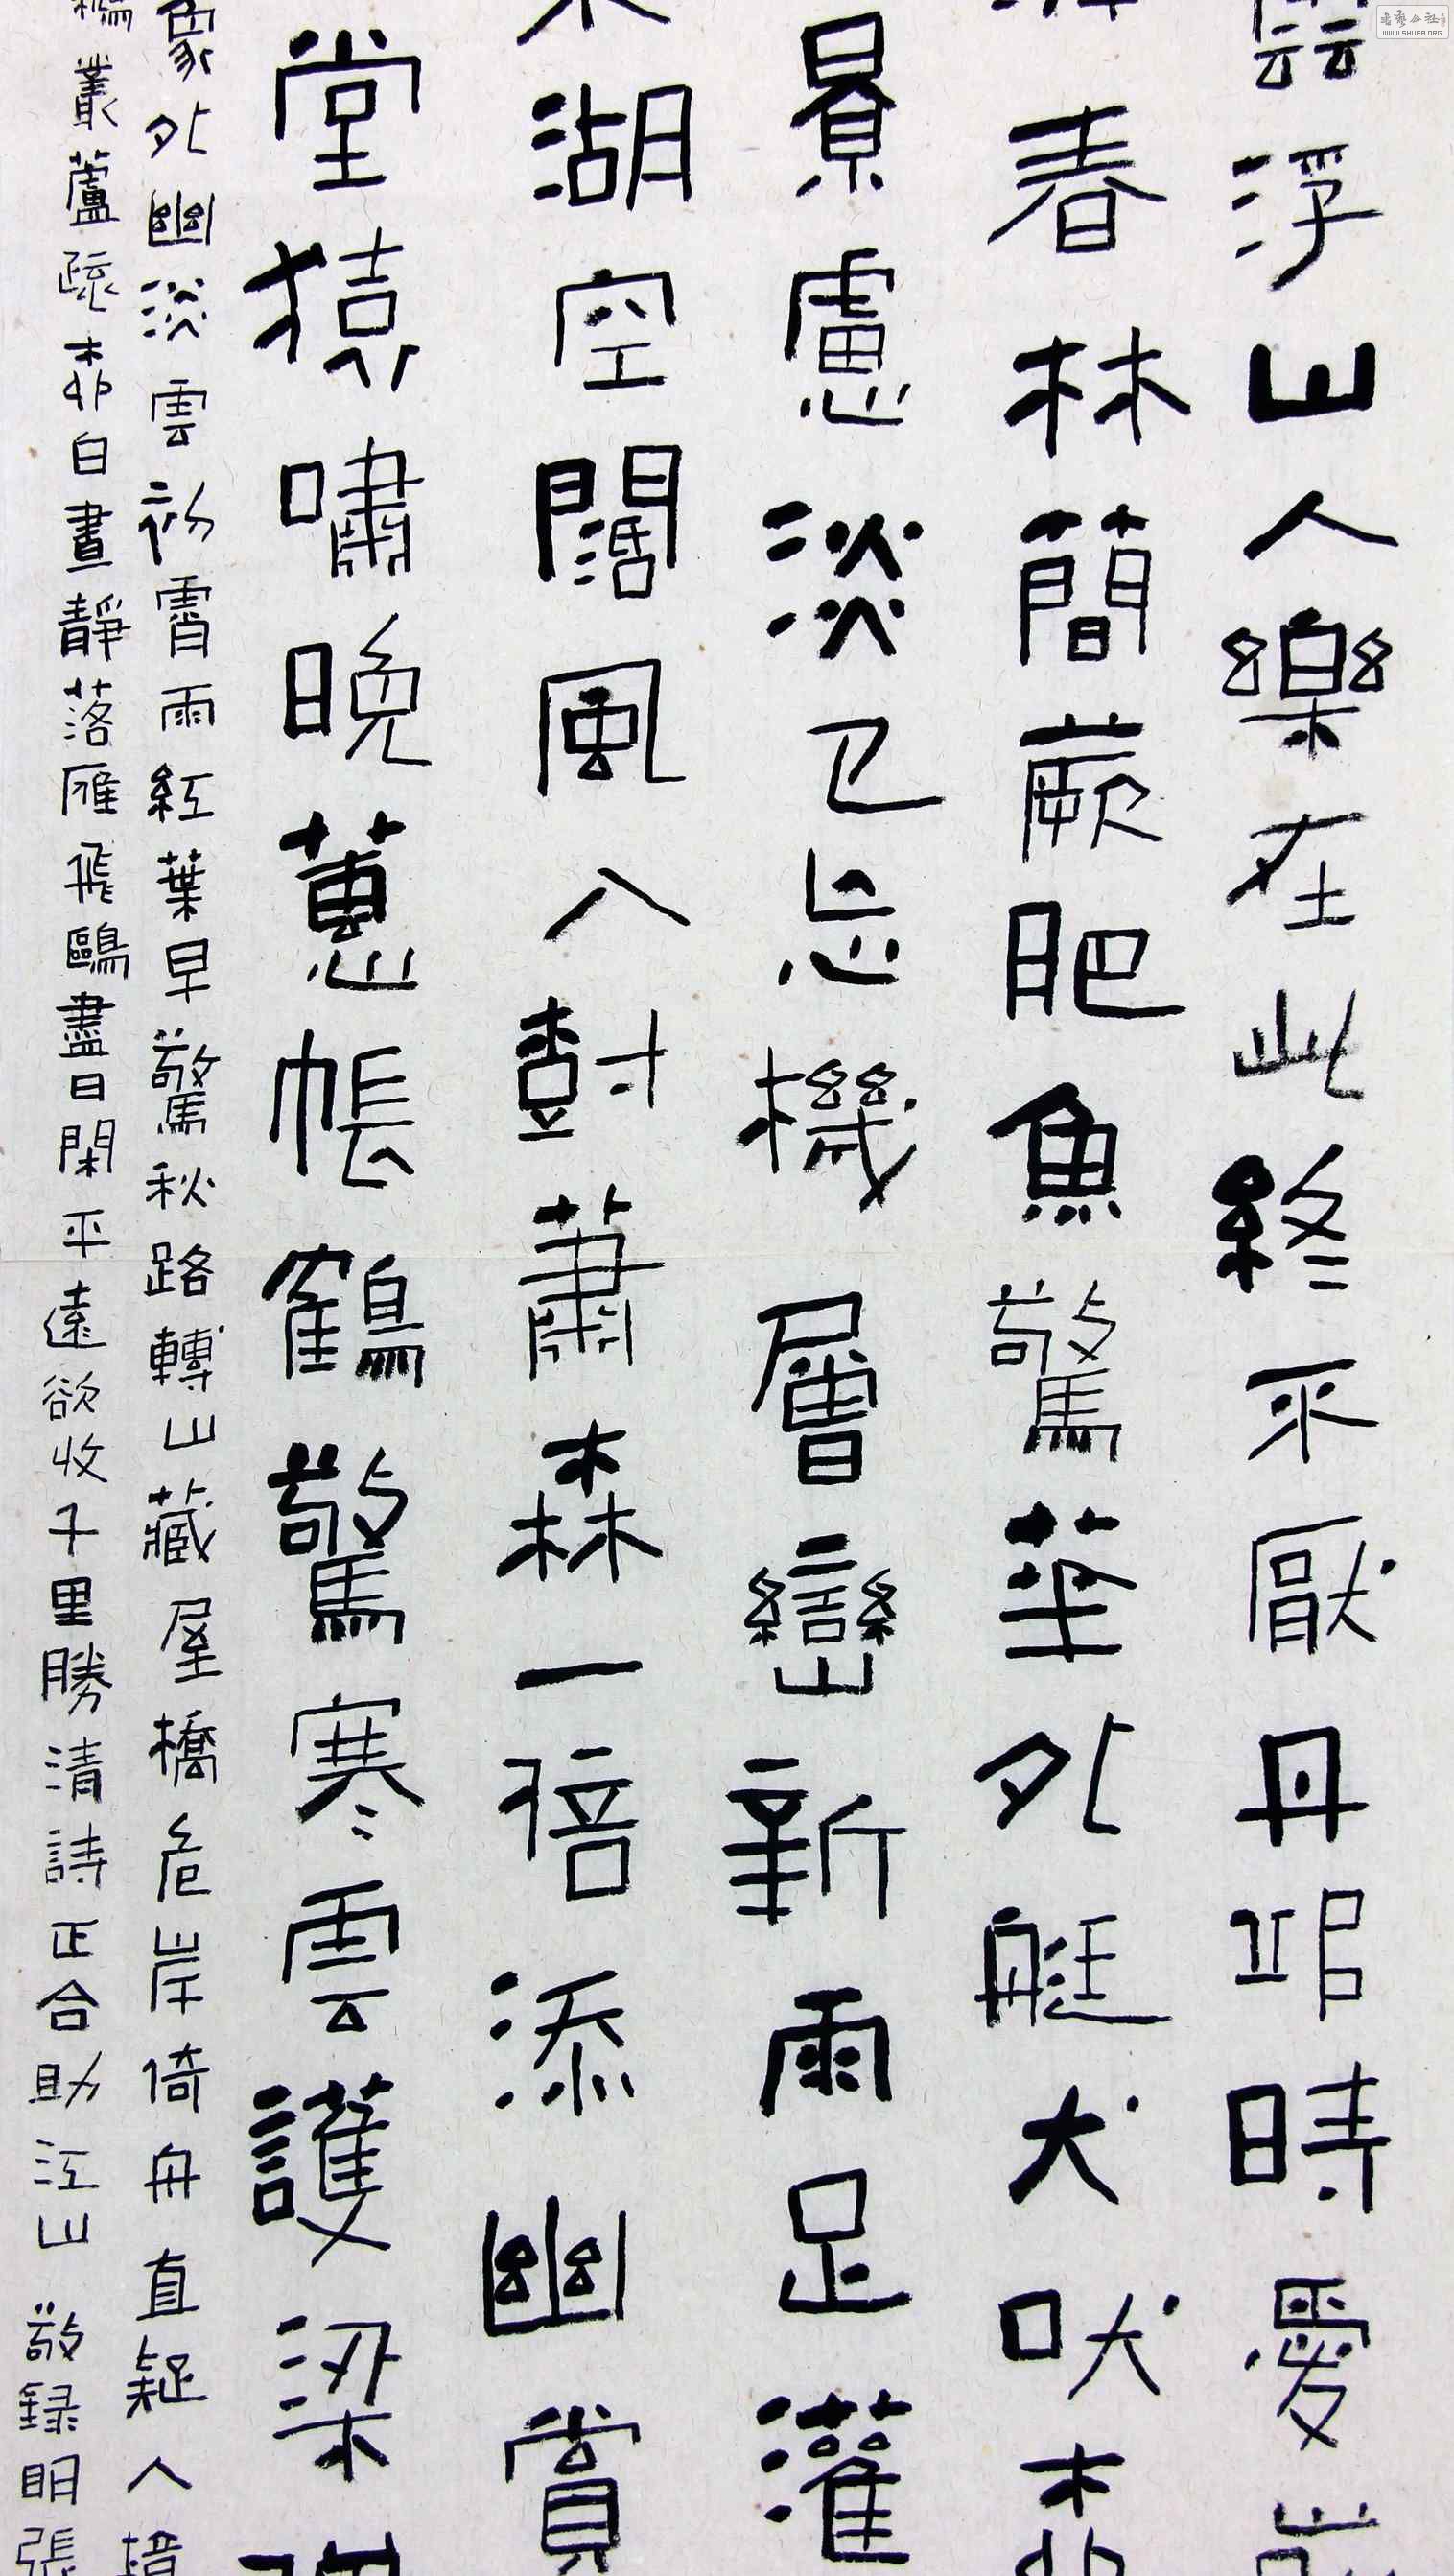 雲浮山人樂在此終不厭丹邱時愛
春林蕳蕨肥魚驚華外艇犬吠
景慮淡已忘機層巒新雨足灌
湖空闊風入樹蕭森一倍添幽賞
堂猿嘯晚蕙帳鶴驚寒雲護梁
象外幽淡雲初霄雨紅葉早驚秋路轉山藏屋橋危岸倚舟直疑人境
叢蘆疏柳白晝靜落雁飛鷗盡日閑平遠欲收千里勝清詩正合助江山 敬録明張
WWW.SHUFA.ORG